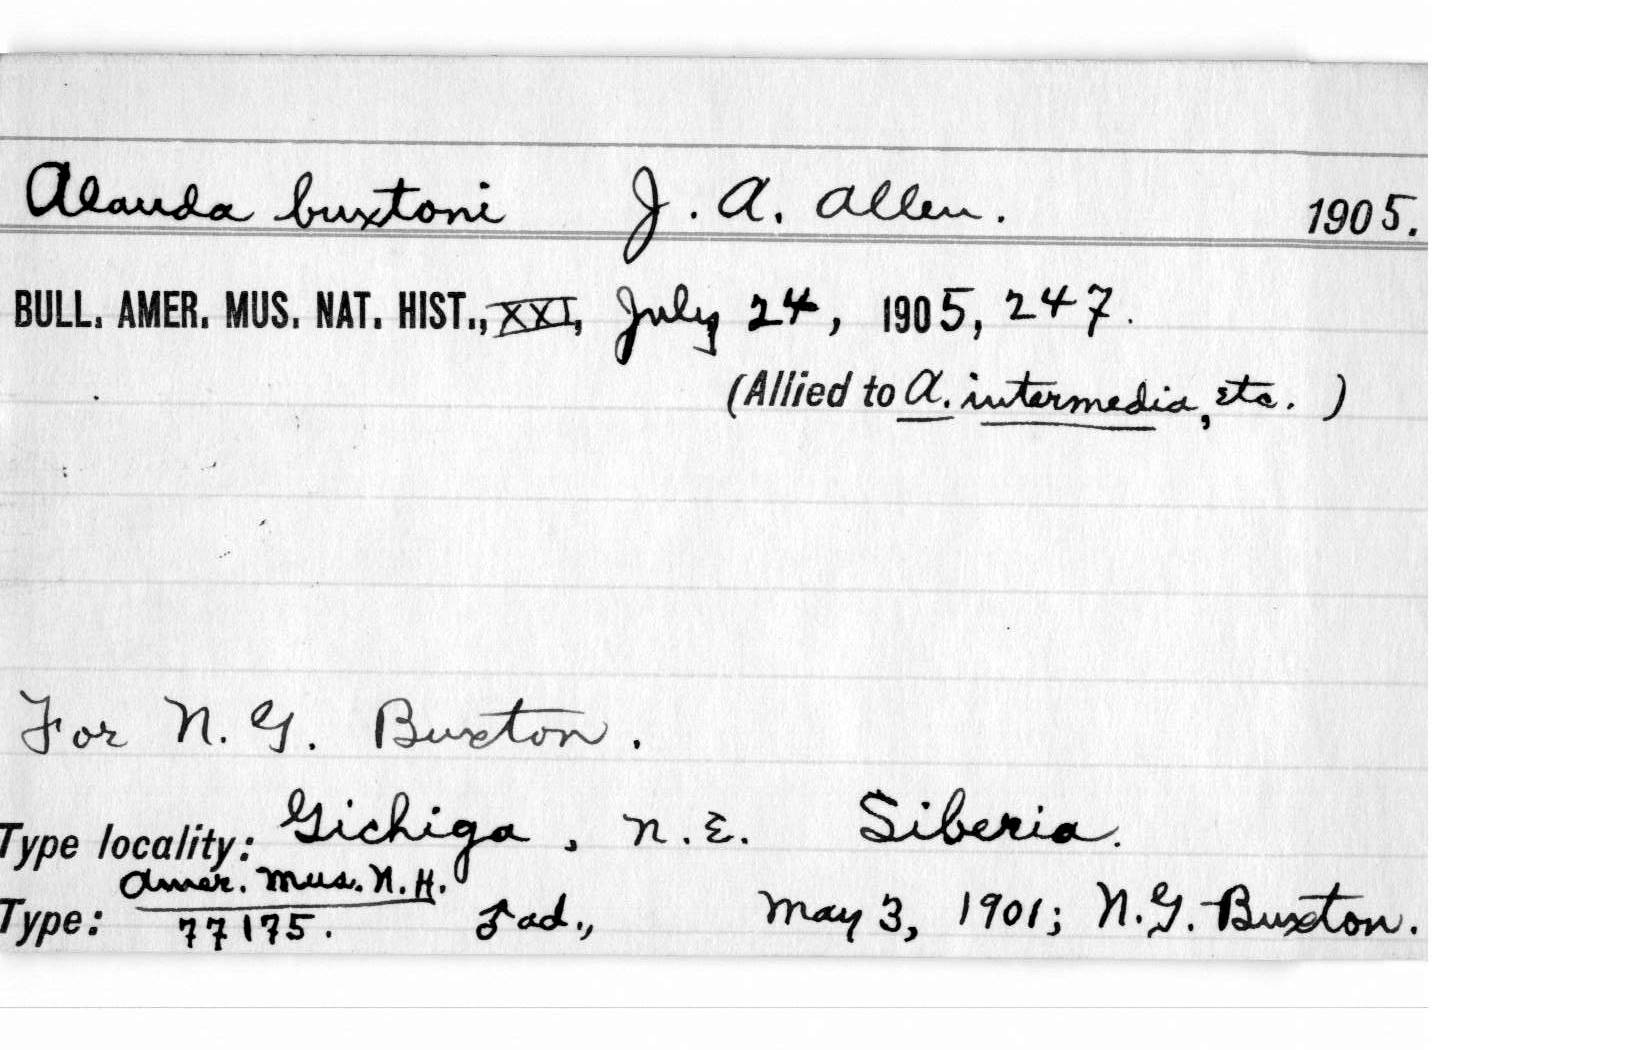 Alauda buxtoni J. A. Allen. 1905.
BULL. AMER. MUS. NAT. HIST., XXI, July 24, 1905, 247.
(Allied to A. intermedia, etc. )
For N. G. Buxton.
Type locality: Gichiga, N.E. Siberia.
Amer. Mus. N. H.
Type: 77175. ♂ ad., May 3, 1901; N. G. Buxton.